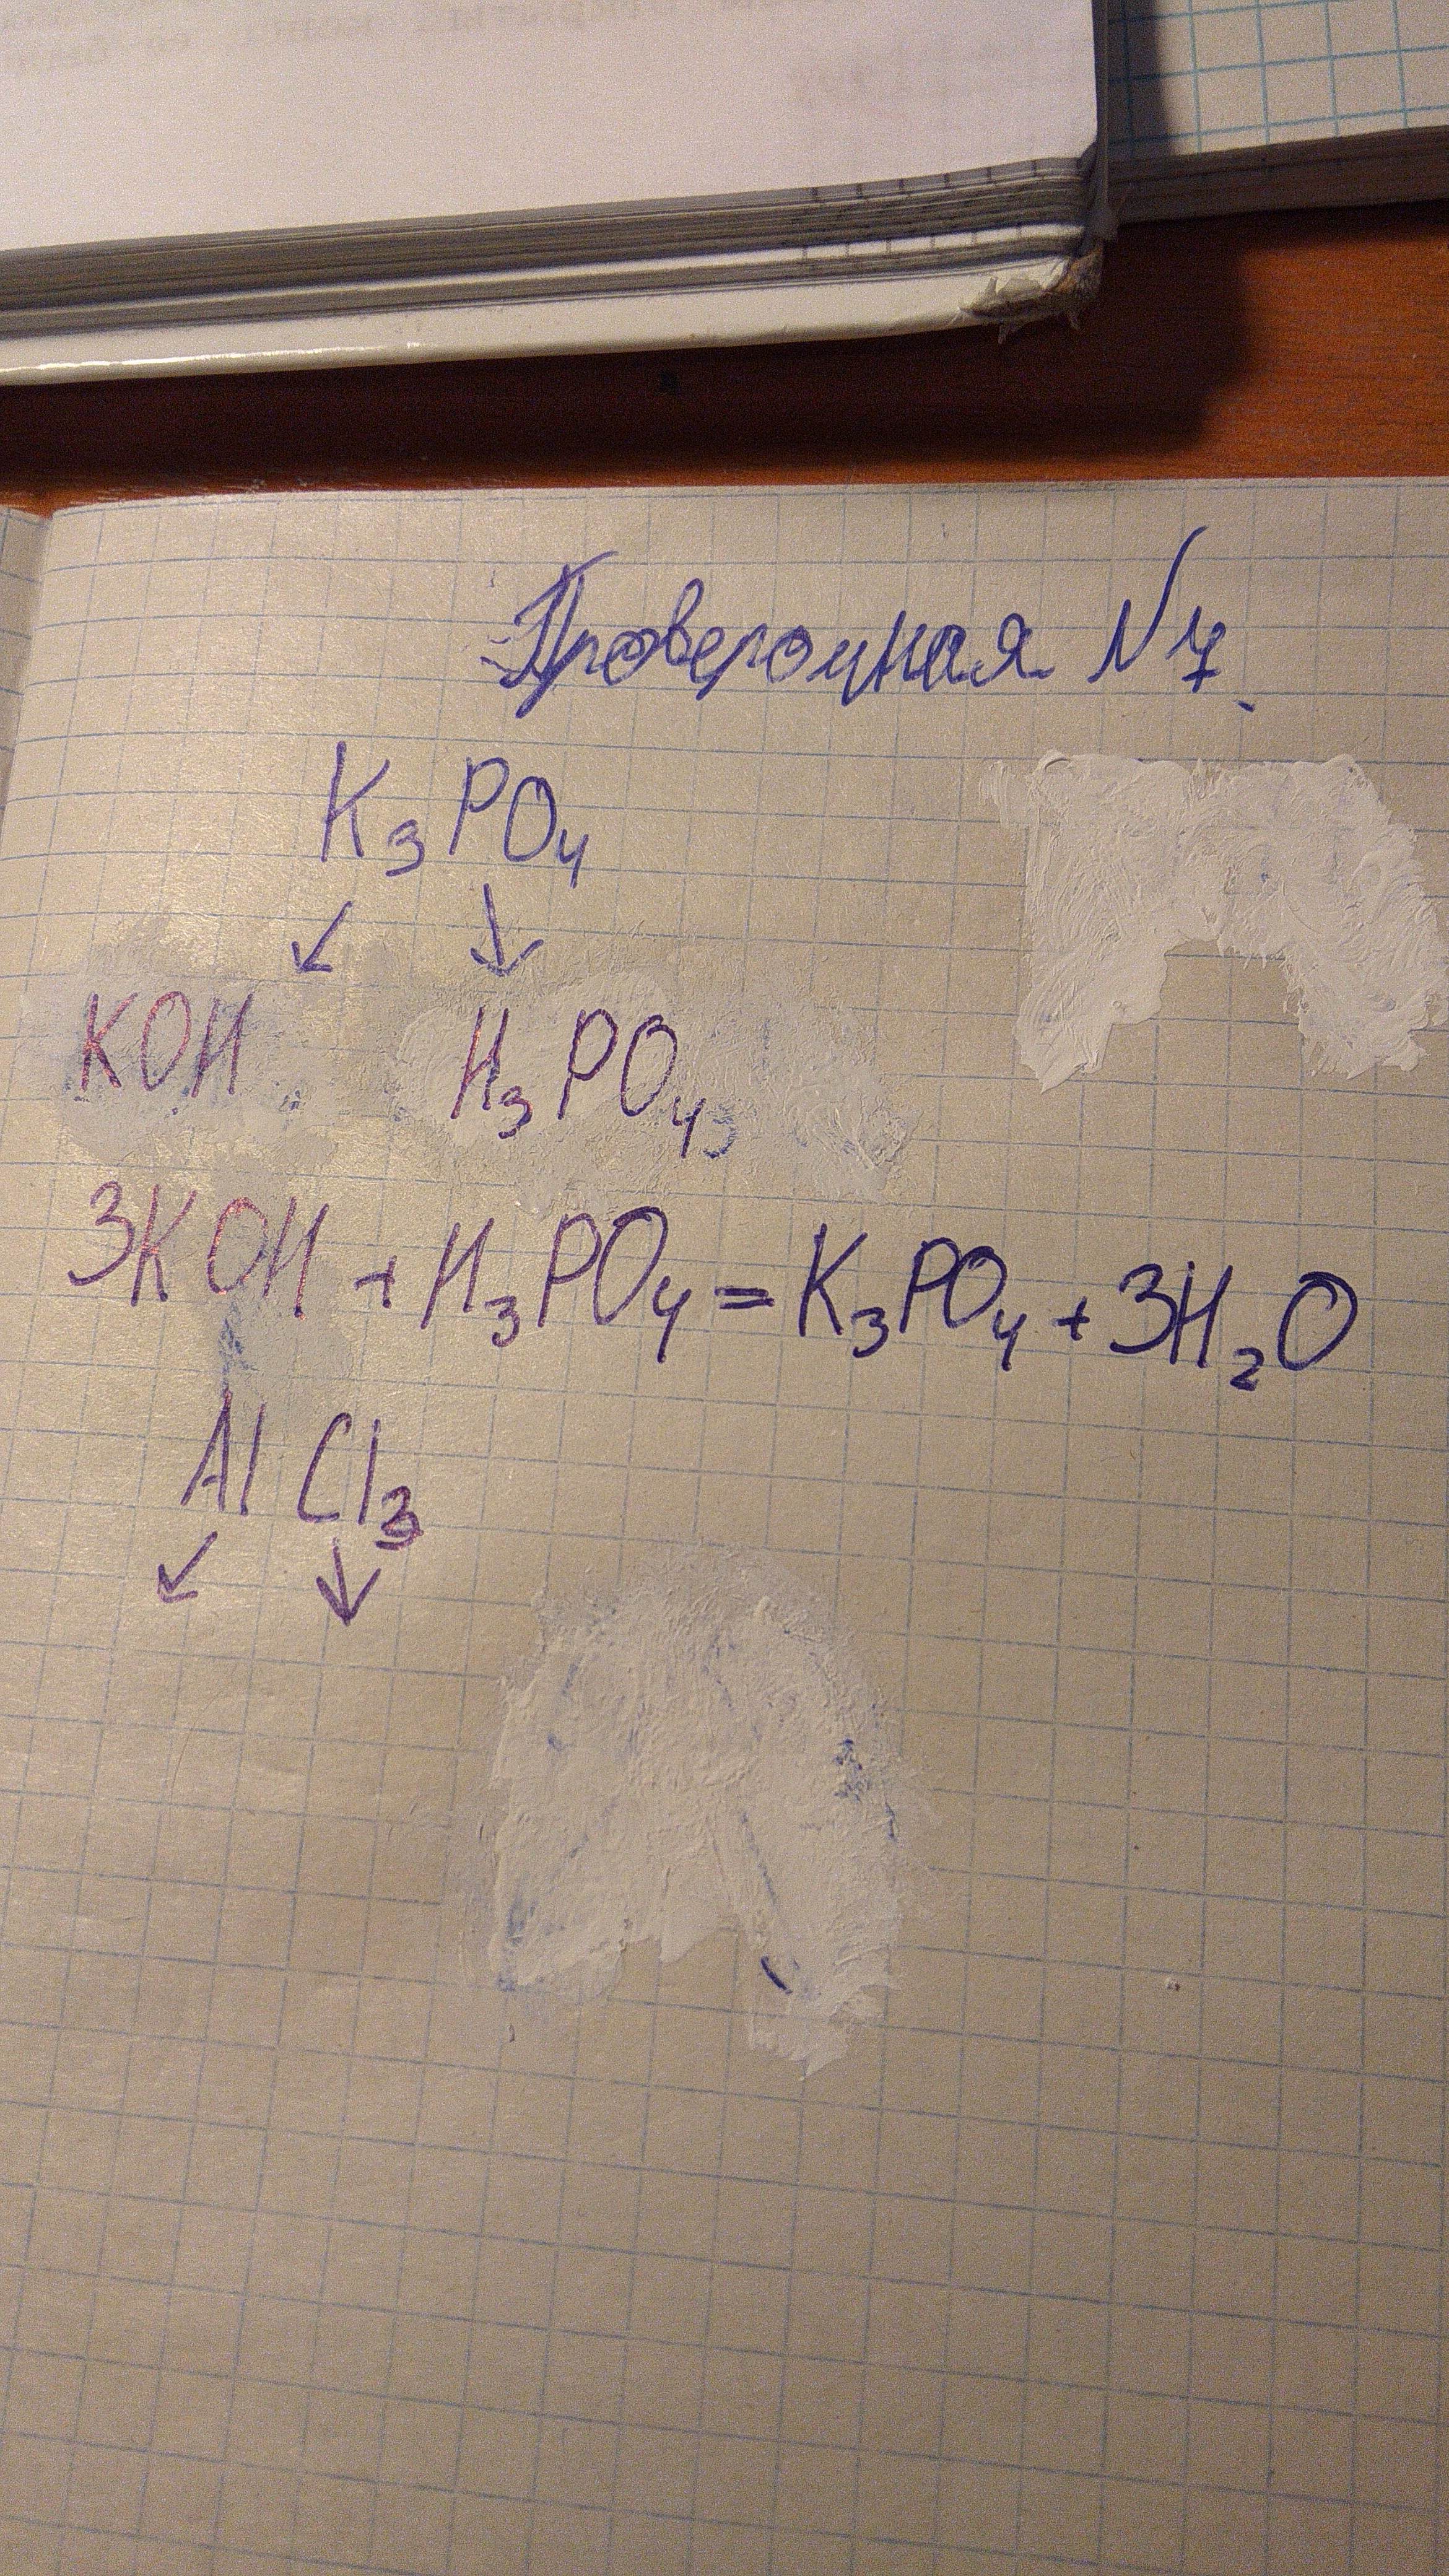 Проверочная №7.
K₃PO₄
↙ ↓
KOH H₃PO₄
3KOH + H₃PO₄ = K₃PO₄ + 3H₂O
AlCl₃
↙ ↓